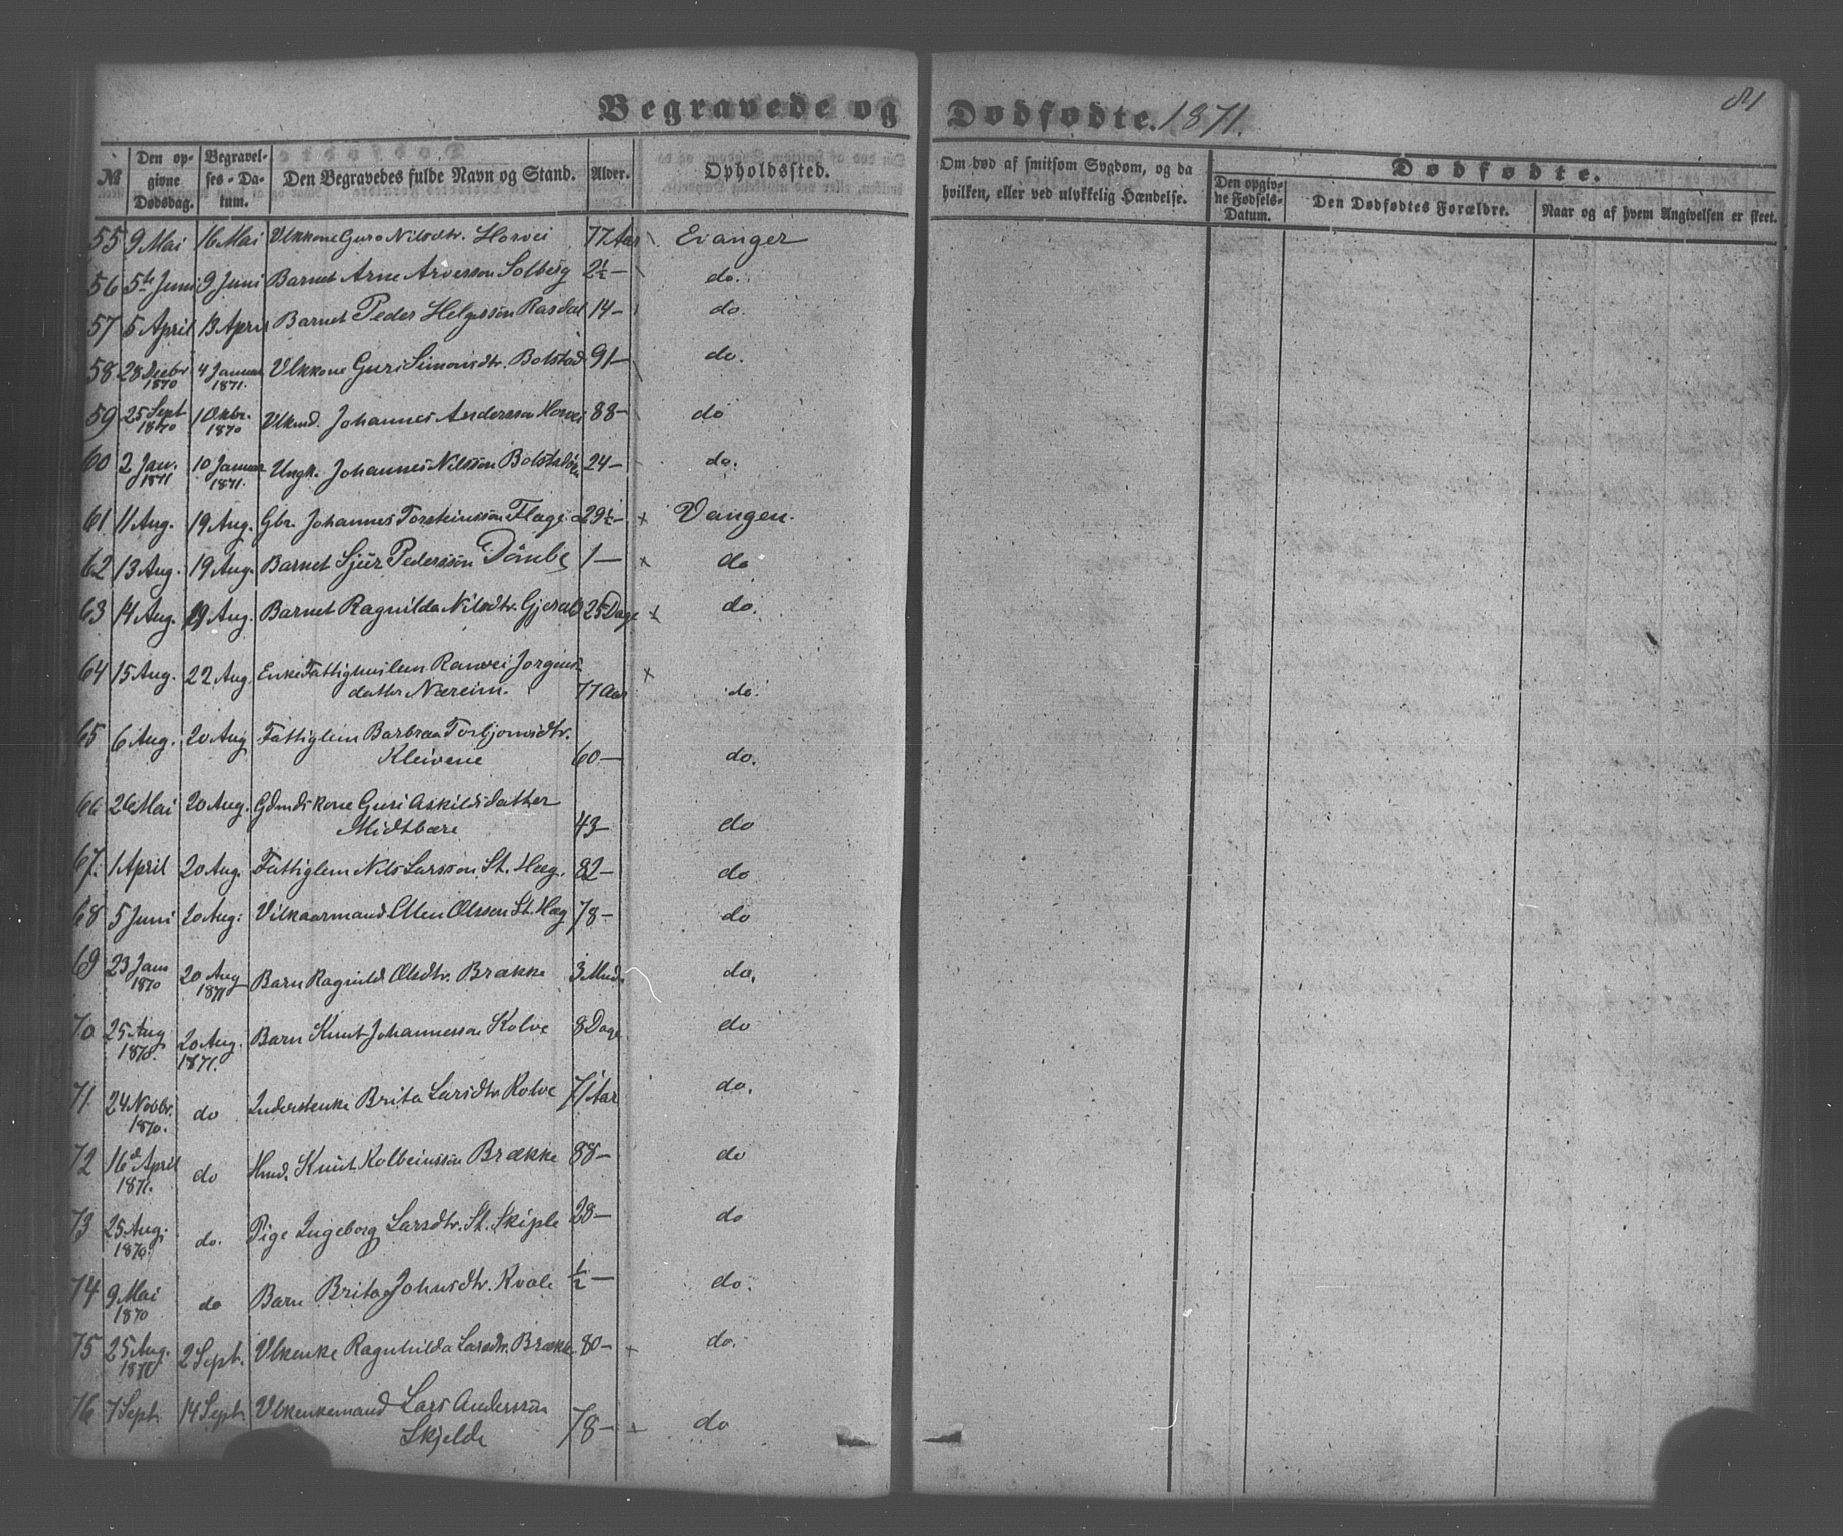 Begravede og Dødfødte. 1871. 81
№ Den opgivne Dødsdag. Begravelses-Datum. Den Begravedes fulde Navn og Stand. Alder. Opholdssted. Om død af smitsom Sygdom, og da hvilken, eller ved ulykkelig Hændelse. Dødfødte.
Den opgivne Fødsels-Datum. Den Dødfødtes Forældre. Naar og af hvem Angivelsen er skeet.
55 9 Mai 16 Mai Vlkkone Guro Nilsdtr. Horvei 77 Aar Evanger
56 5te Juni 9 Juni Barnet Arne Arnesson Solberg 2½ — do.
57 5 April 13 April Barnet Peder Helgesson Rasdal 14 — do.
58 28 Decbr 1870 4 Januar 1871. Vlkkone Guri Simonsdtr. Bolstad 91 — do.
59 25 Sept 1870 1 Oktbr. 1870 Vlkmd. Johannes Andersson Horvei 88 — do
60 2 Jan. 1871 10 Januar 1871. Ungk. Johannes Nilsson 24 — do.
61 11 Aug. 19 Aug. Gbr. Johannes Torsteinsson Flage 29½ — x Vangen.
62 13 Aug. 19 Aug. Barnet Sjur Pedersson Dömbe 1 — x do
63 14 Aug. 19 Aug. Barnet Ragnilda Nilsdtr. Gjerald 25 Dage x do.
64 15 Aug. 22 Aug. Enke Fattiglem Ranvei Jorgens-
datter Næreim. 77 Aar x do.
65 6 Aug. 20 Aug Fattiglem Barbraa Torbjornsdtr.
Kleivene 60 — do.
66 26 Mai 20 Aug. Gdmdskone Guri Askildsdatter
Midtbære 43 — do
67. 1 April 20 Aug. Fattiglem Nils Larsson St. Hæg. 82 — do
68 5 Juni 20 Aug. Vilkaarmand Olsson St. Hæg 78 — do
69 23 Jan 1870 20 Aug 1871 Barn Ragnild Olsdtr. Brække 3 Mnd. do.
70 25 Aug 1870. 20 Aug. 1871. Barn Knut Johannesson Kolve 8 Dage do
71 24 Novbr. 1870. do Inderstenke Brita Larsdtr Kolve 71 Aar do.
72 16de April 1871. do Hmd. Knut Kolbeinsson Brække 88 — do
73 25 Aug. 1870. do. Pige Ingeborg Larsdtr. St. Skiple 28 — do
74 9 Mai 1870 do Barn Brita Johnsdtr. Kvale ½ — do.
75 25 Aug. 1871 2 Sept. Vlkenke Ragnhilda Larsdtr. Brække 80 — x do.
76 7 Sept. 14 Sept. Vlkenkemand Lars Andersson
Skjelde 78 — x do